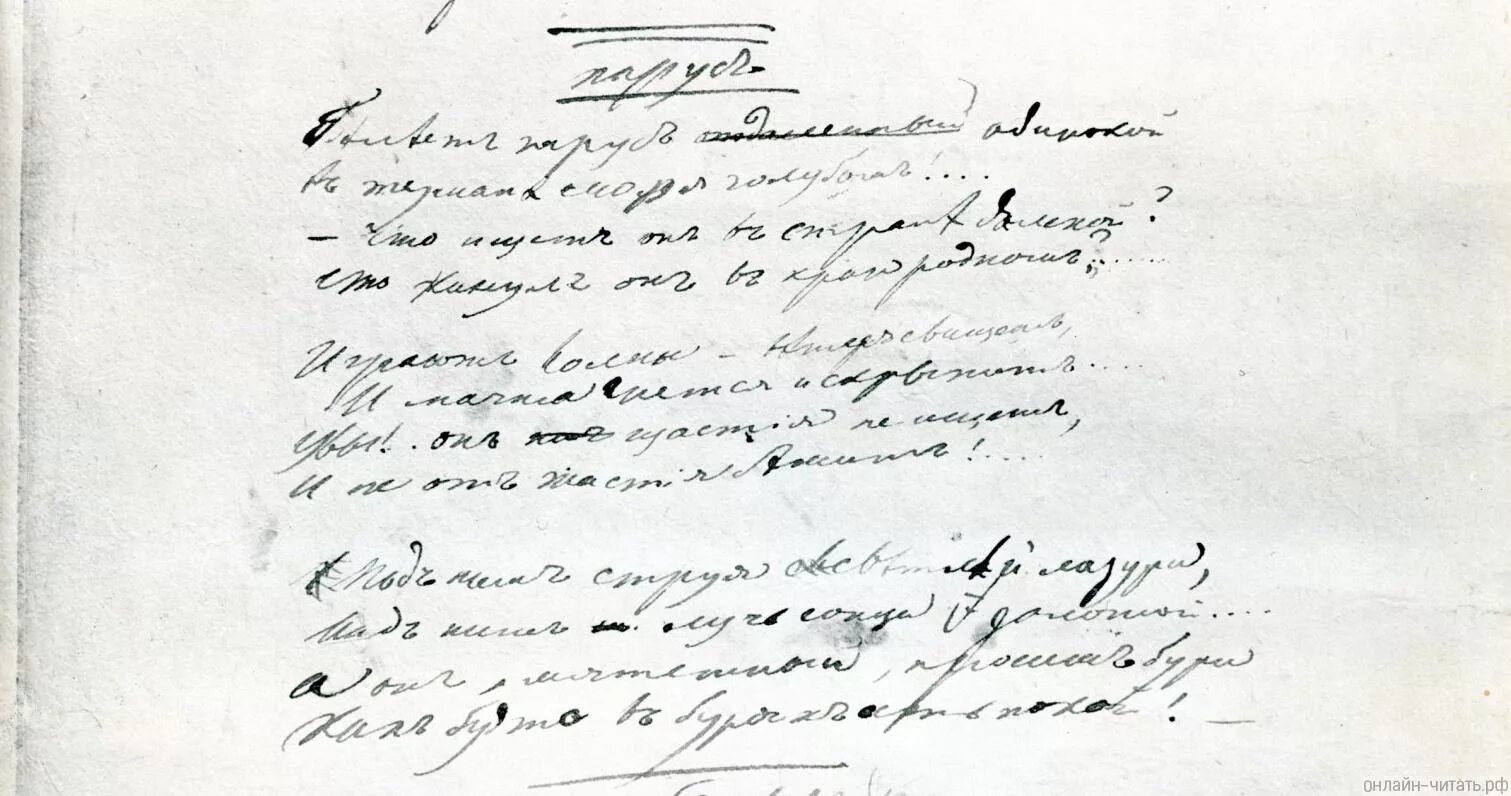 парусъ
Бѣлѣетъ парусъ одинокой
Въ туманѣ моря голубомъ!....
– Что ищетъ онъ въ странѣ далекой?
Что кинулъ онъ въ краю родномъ?......
Играютъ волны – вѣтеръ свищетъ,
И мачта гнется и скрыпитъ....
Увы!.. онъ щастія не ищетъ,
И не отъ щастія бѣжитъ!....
Подъ нимъ струя свѣтлѣй лазури,
Надъ нимъ лучь солнца золотой....
А онъ, мятежный, проситъ бури
Какъ будто въ буряхъ есть покой! –
онлайн-читать.рф